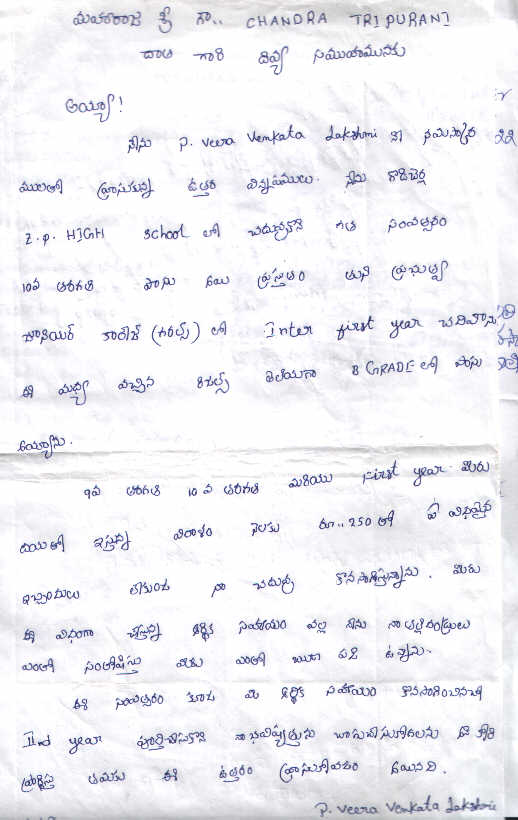 మహారాజ శ్రీ గౌ,, CHANDRA TRIPURANI
దాత గారి దివ్య సముఖమునకు
అయ్యా!
నేను P. Veera Venkata Lakshmi నా నమస్కార
ములతో వ్రాసుకున్న ఉత్తర విన్నపములు. నేను
Z.P. HIGH School లో చదువుకొని గత సంవత్సరం
10వ తరగతి పాసు అయి ప్రస్తుతం తుని ప్రభుత్వ
జూనియర్ కాలేజ్ (గరల్స్) లో Inter first year చదివాను
ఈ మధ్య వచ్చిన రిజల్ట్స్ తెలియగా B GRADE లో పాసు
అయ్యాను.
9వ తరగతి 10 వ తరగతి మరియు First year మీరు
దయతో ఇస్తున్న విరాళం నెలకు రూ,, 250 తో ఏ విధమైన
ఇబ్బందులు లేకుండ నా చదువు కొనసాగిస్తున్నాను. మీరు
ఈ విధంగా చేస్తున్న ఆర్థిక సహాయం వల్ల నేను నా తల్లిదండ్రులు
ఎంతో సంతోషిస్తు మీకు ఎంతో ఋణ పడి ఉన్నాను.
ఈ సంవత్సరం కూడ మీ ఆర్థిక సహాయం
IInd year పూర్తిచేసుకొని నా భవిష్యత్తును
ప్రార్థిస్తు తమకు ఈ ఉత్తరం వ్రాసుకోవడం అయినది.
P. Veera Venkata Lakshmi